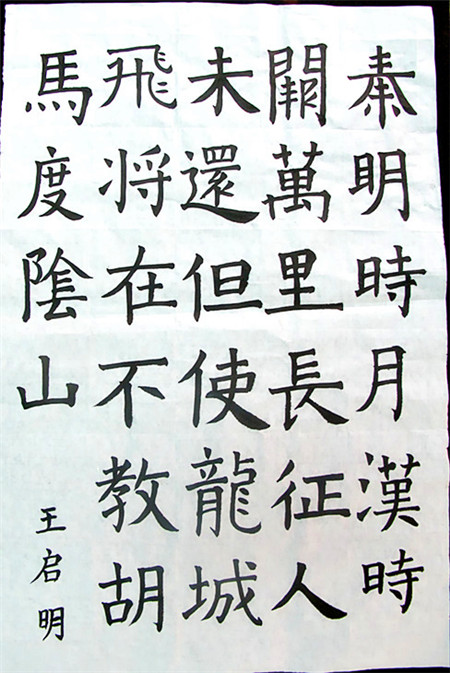 秦明時月漢時
關萬里長征人
未還但使龍城
飛将在不教胡
馬度陰山
王启明